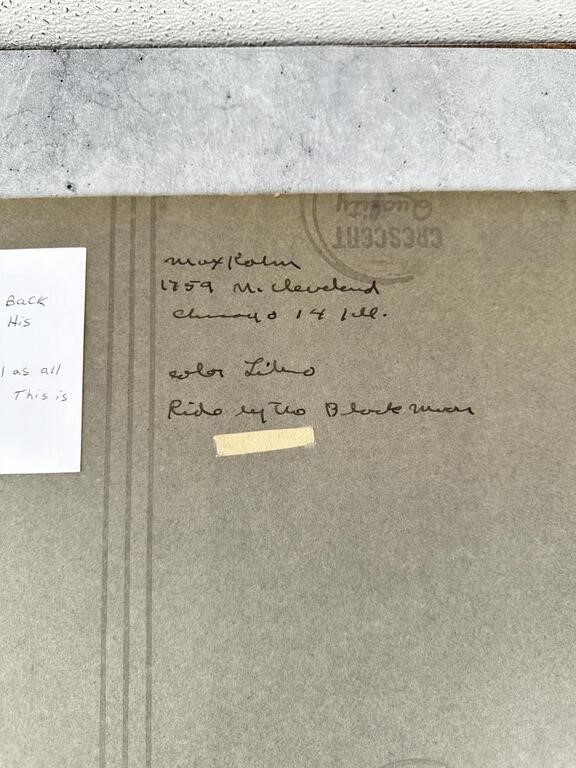 CRESCENT
Quality
Max Kahn
1759 N. Cleveland
Chicago 14 Ill.
color Litho
Ride by the Black Moon
BACK
HIS
as all
This is